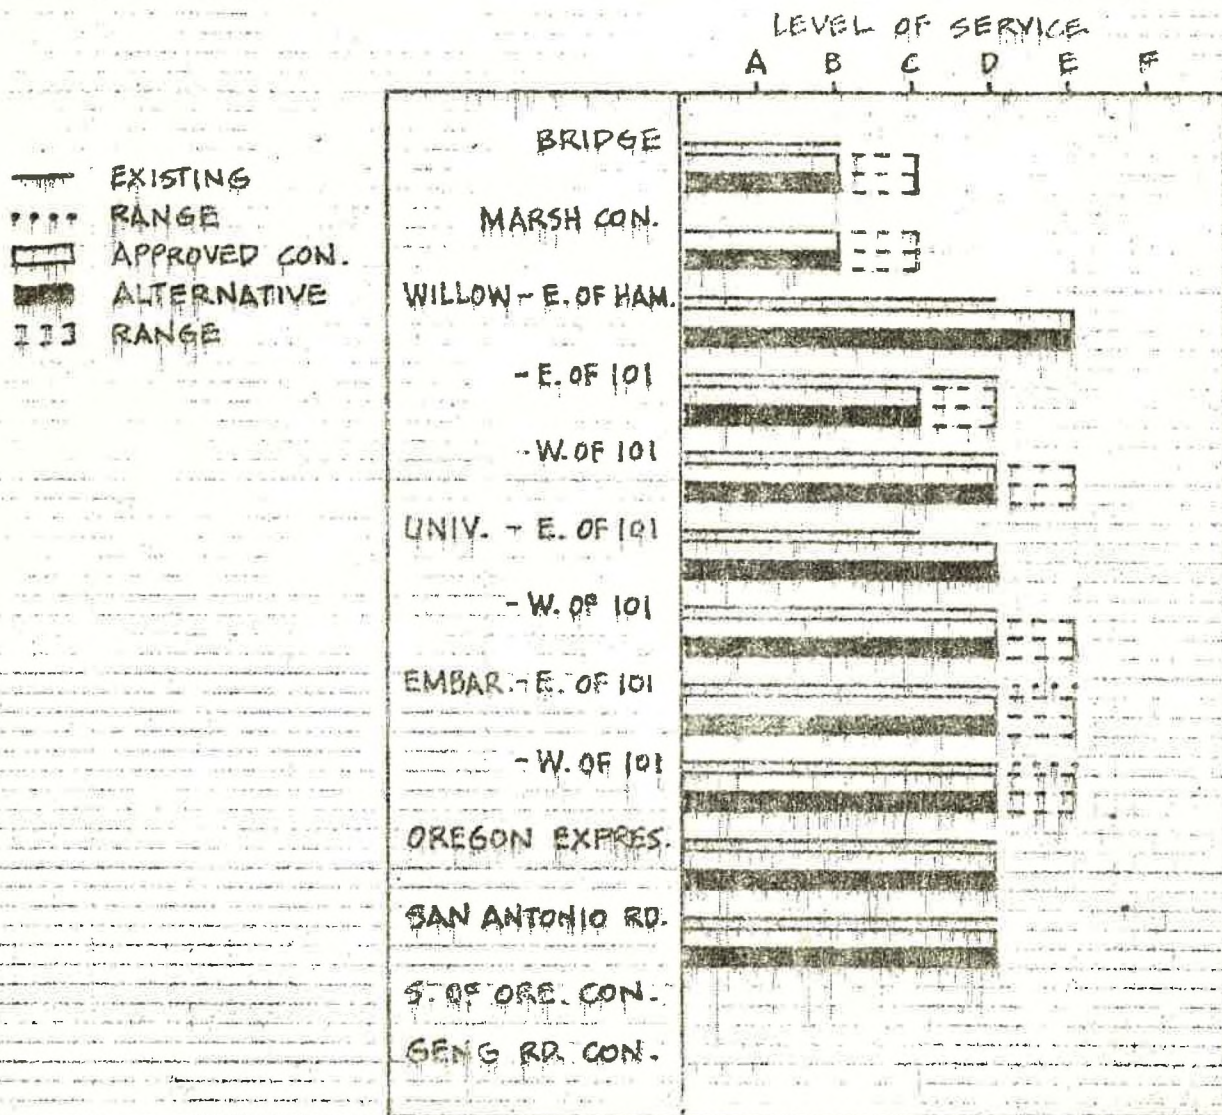 LEVEL OF SERVICE
A B C D E F
EXISTING
RANGE
APPROVED CON.
ALTERNATIVE
RANGE
BRIDGE
MARSH CON.
WILLOW - E. OF HAM.
- E. OF 101
- W. OF 101
UNIV. - E. OF 101
- W. OF 101
EMBAR. - E. OF 101
- W. OF 101
OREGON EXPRES.
SAN ANTONIO RD.
S. OF ORE. CON.
GENG RD. CON.